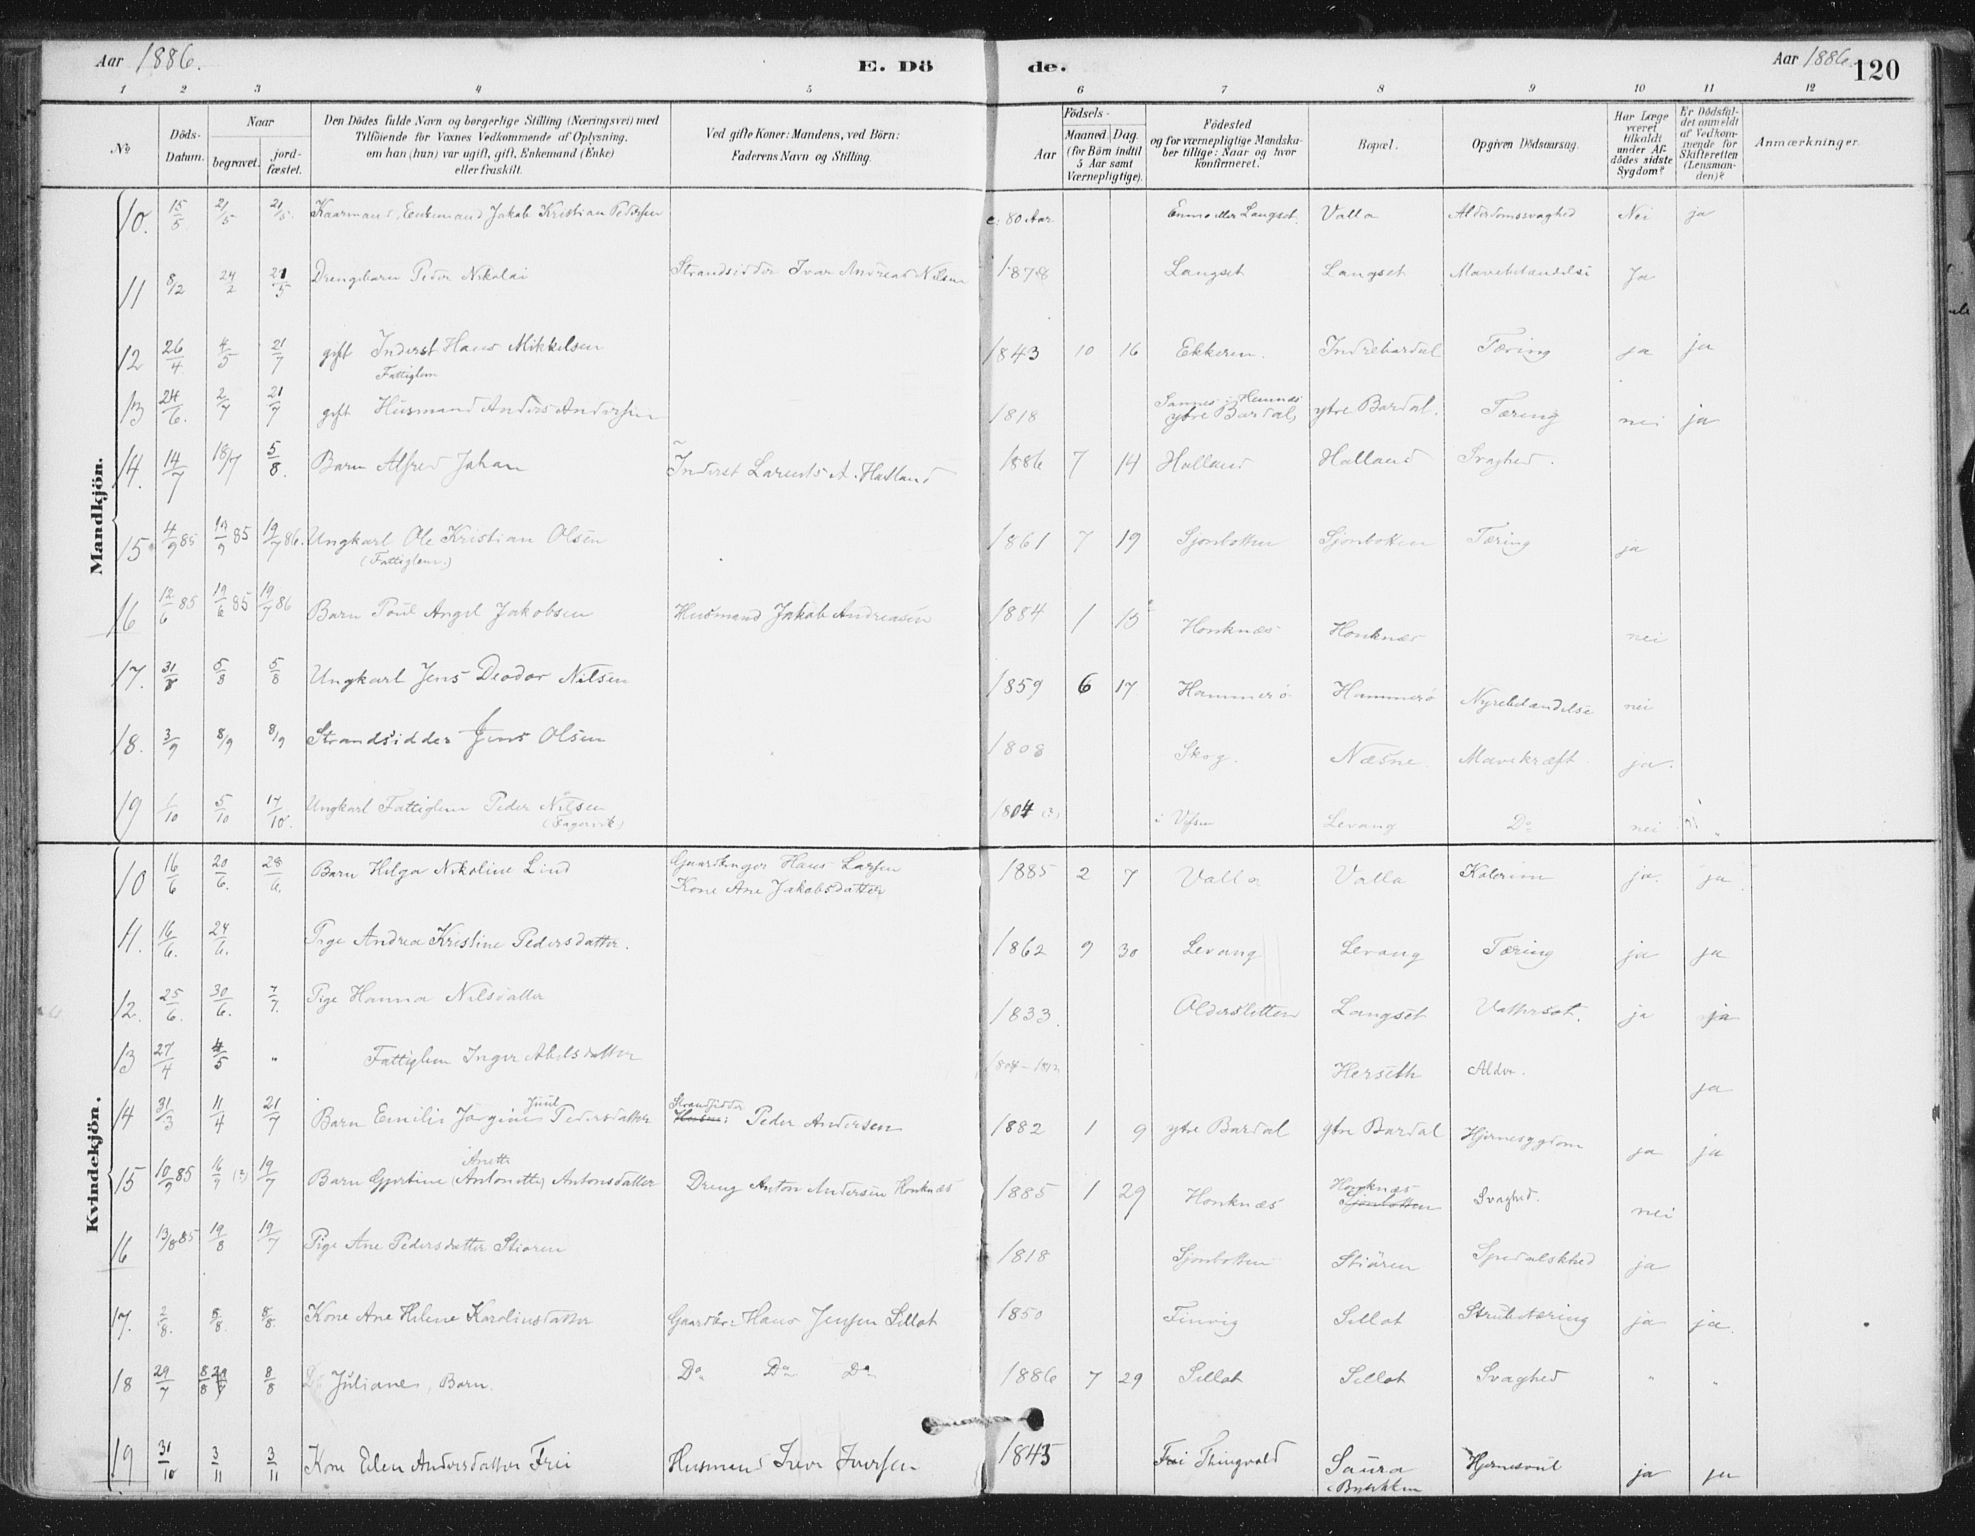 Aar 1886. E. Döde. Aar 1886. 120
1 2 3 4 5 6 7 8 9 10 11 12
No Döds-Datum. Naar begravet. jordfæstet. Den Dödes fulde Navn og borgerlige Stilling (Næringsvei) med Tilföiende for Voxnes Vedkommende af Oplysning. om han (hun) var ugift, gift, Enkemand (Enke) eller fraskilt. Ved gifte Koner: Mandens, ved Börn: Faderens Navn og Stilling. Födsels- Aar Maaned. Dag. (for Börn indtil 5 Aar samt Værnepligtige). Födested og for værnepligtige Mandskaber tillige: Naar og hvor konfirmeret. Bopæl. Opgiven Dödsaarsag. Har Læge været tilkaldt under Afdödes sidste Sygdom? Er Dödsfaldet anmeldt af Vedkommende for Skifteretten (Lensmanden)? Anmærkninger.
Mandkjön.
10. 15/5 21/5 21/5 Kaarmand, Enkemand Jakob Kristian Pedersen c. 80 Aar Enmo eller Langset. Valla Alderdomssvaghed Nei ja
11 8/2 24/2 21/5 Drengebarn Peder Nikolai Strandsidder Ivar Andreas Nilsen 1878 Langset Langset Mavebetændelse Ja
12 26/4 4/5 21/7 gift Inderst Hans Mikkelsen 1843 10 16 Ekkeren. Indrebardal Tæring ja ja
Fattiglem
13 24/6. 2/7 21/7 gift Husmand Anders Andersen 1818 Sannes i Hemnes ytre Bardal ytre Bardal. Tæring nei ja
14. 14/7 18/7 5/8. Barn Alfred Johan Inderst Larents A. Halland 1886 7 14 Halland Halland Svaghed.
15 4/9 85 19/9 85 19/7 86. Ungkarl Ole Kristian Olsen 1861 7 19 Sjonbotten Sjonbotten Tæring ja
(Fattiglem.)
16 12/6 85 19/6 85 19/7 86 Barn Poul Angel Jakobsen Husmand Jakob Andreasen 1884 1 13 Honknæs Honknæs nei
17. 31/8 5/8 5/8 Ungkarl Jens Deodor Nilsen 1859 6 17 Hammerö Hammerö Nyrebetændelse nei
18. 3/9 8/9 8/9 Strandsidder Jens Olsen 1808 Skog. Næsne. Mavekræft ja.
19 1/10 5/10 17/10. Ungkarl Fattiglem Peder Nilsen 1804 (3) i Vefsen Levang Do nei "
(Fagervik)
Kvindekjön.
10 16/6 20/6. 28/6. Barn Helga Nikoline Lind Gaardbruger Hans Larsen 1885 2 7 Valla Valla Kolerine ja. ja
Kone Ane Jakobsdatter
11. 16/6. 24/6. Pige Andrea Kristine Pedersdatter. 1862 9 30 Levang Levang Tæring ja ja
12. 25/6. 30/6. 7/7. Pige Hanna Nilsdatter 1833. Oldersletten Langset Vattersot. ja ja
13 27/4 4/5 " Fattiglem Inger Abelsdatter Herseth Alder. ja
14 31/3 11/4 21/7 Barn Emilie Jörgine Juul Pedersdatter Strandsidder Peder Andersen 1882 1 9 ytre Bardal ytre Bardal Hjernesygdom ja ja
15 10/9 85 16/9 (?) 19/7 Barn Gjertine (Antonette) Anette Antonsdatter Dreng Anton Andersen Honknæs 1885 1 29 Honknæs Honknæs Sjonbotten Svaghed. nei
16 13/8 85 19/8 19/7 Pige Ane Pedersdatter Stioren 1818 Sjonbotten Stiören Spedalskhed ja
17. 2/8. 8/8. 8/8. Kone Ane Helene Karoliusdatter Gaardbr: Hans Jensen Sellot 1850 Finvig Sellot Strubetæring ja ja.
18 29/7 8/8 8/8 Juliane, Barn. Do Do Do 1886 7 29 Sellot Sellot Svaghed " "
19 31/10 3/11 3/11 Kone Elen Andersdatter Frei Husmand Iver Iversen 1845 Frei Thingvold Saura Hjernesvul ja ja